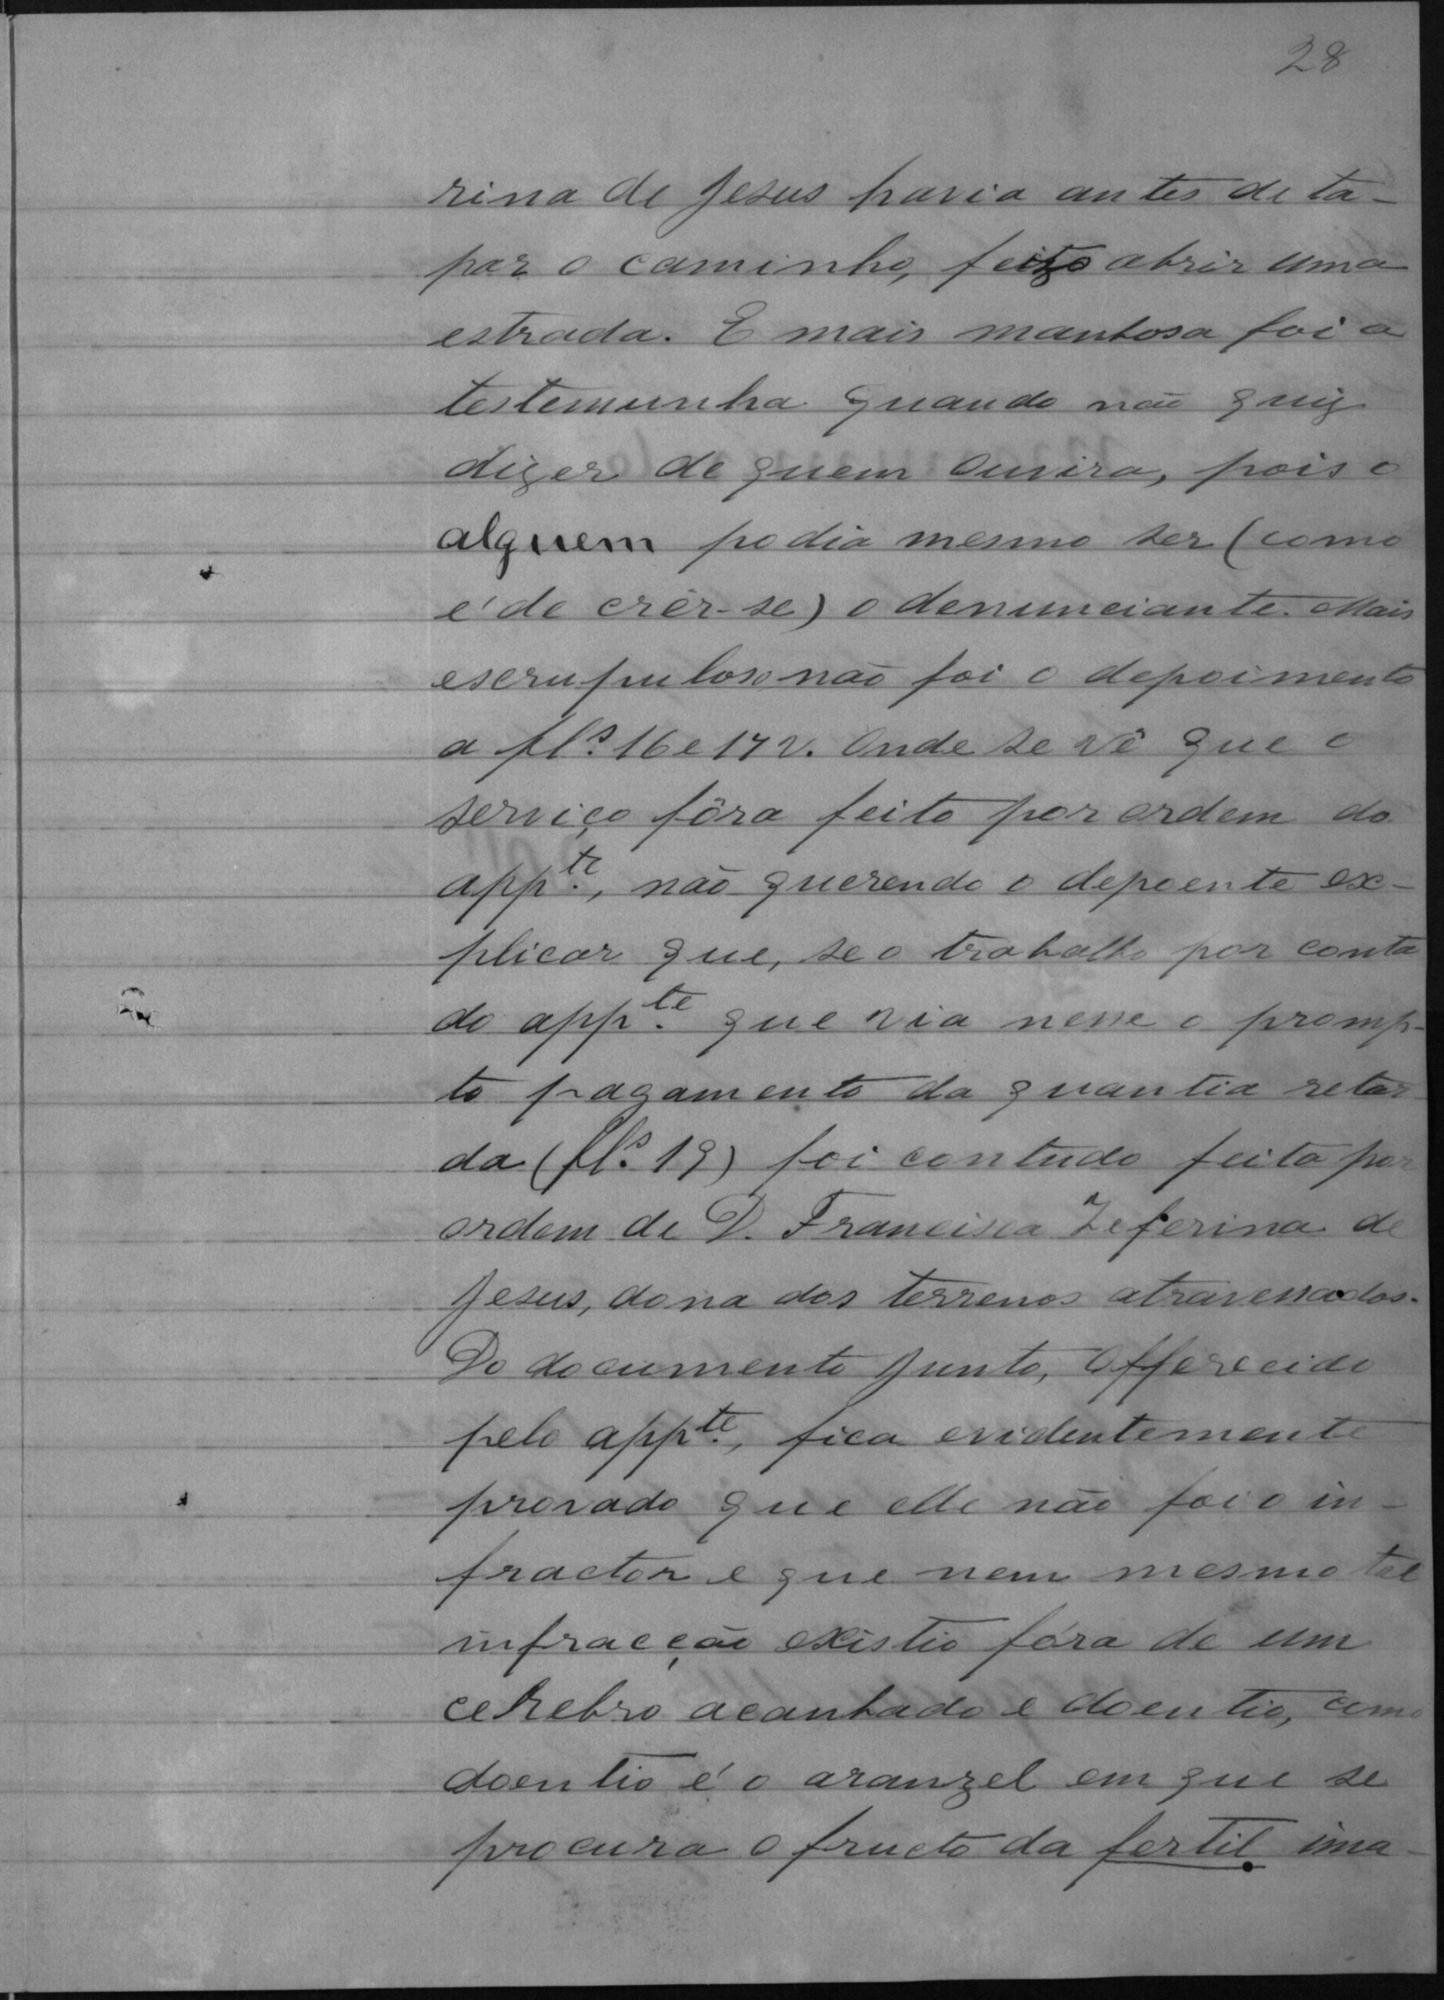 28
rina de Jesus havia antes de ta-
par o caminho, feito abrir uma
estrada. E mais manhosa foi a
testemunha quando não quiz
dizer de quem ouvira, pois o
alguem podia mesmo ser (como
é de crêr-se) o denunciante. Mais
escrupuloso não foi o depoimento
a fls. 16 e 17 v. Onde se vê que o
serviço fôra feito por ordem do
app.te, não querendo o depoente ex-
plicar que, se o trabalho por conta
do app.te que via nesse o promp-
to pagamento da quantia
da (fls. 19) foi contudo feito por
ordem de D. Francisca Zeferina de
Jesus, dona dos terrenos atravessados.
Do documento junto, offerecido
pelo app.te, fica evidentemente
provado que elle não foi o in-
fractor e que nem mesmo tal
infracção existio fóra de um
cerebro acanhado e doentio, como
doentio é o aranzel em que se
procura o fructo da fertil ima-